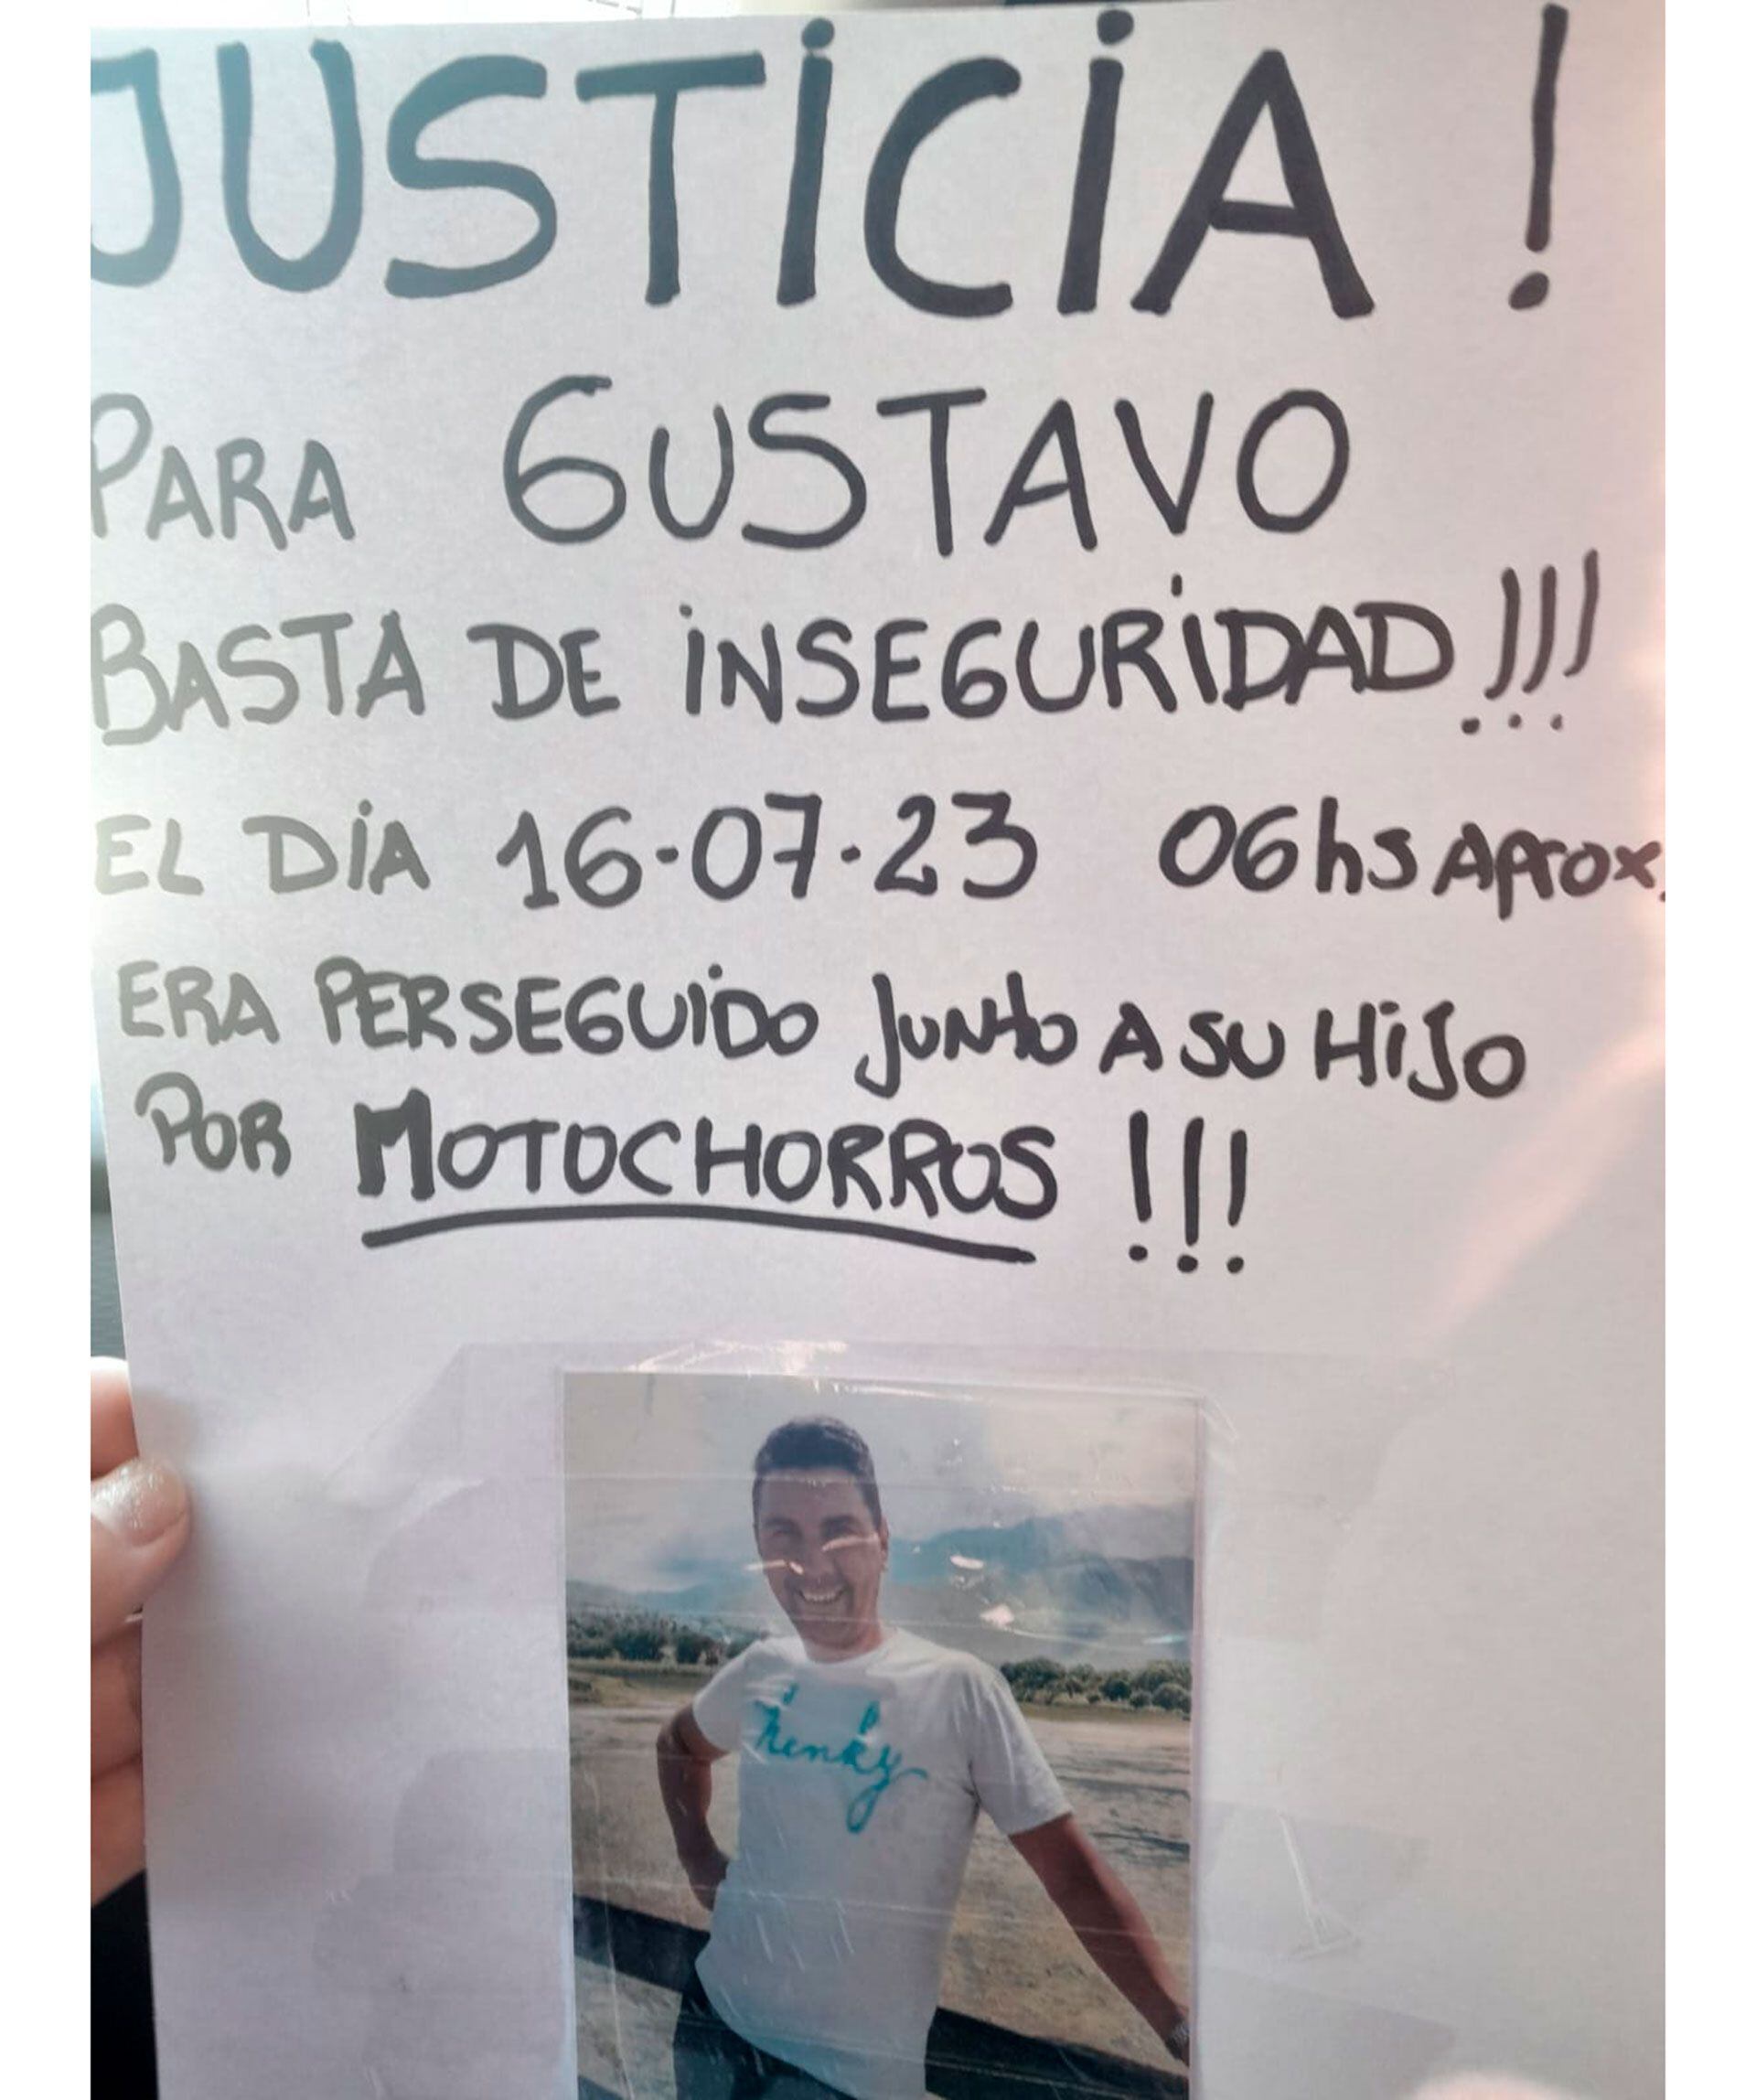 JUSTICIA !
PARA GUSTAVO
BASTA DE INSEGURIDAD!!!
EL DÍA 16·07·23 06hs Aprox.
ERA PERSEGUIDO JUNTO A SU HIJO
POR MOTOCHORROS !!!
henky